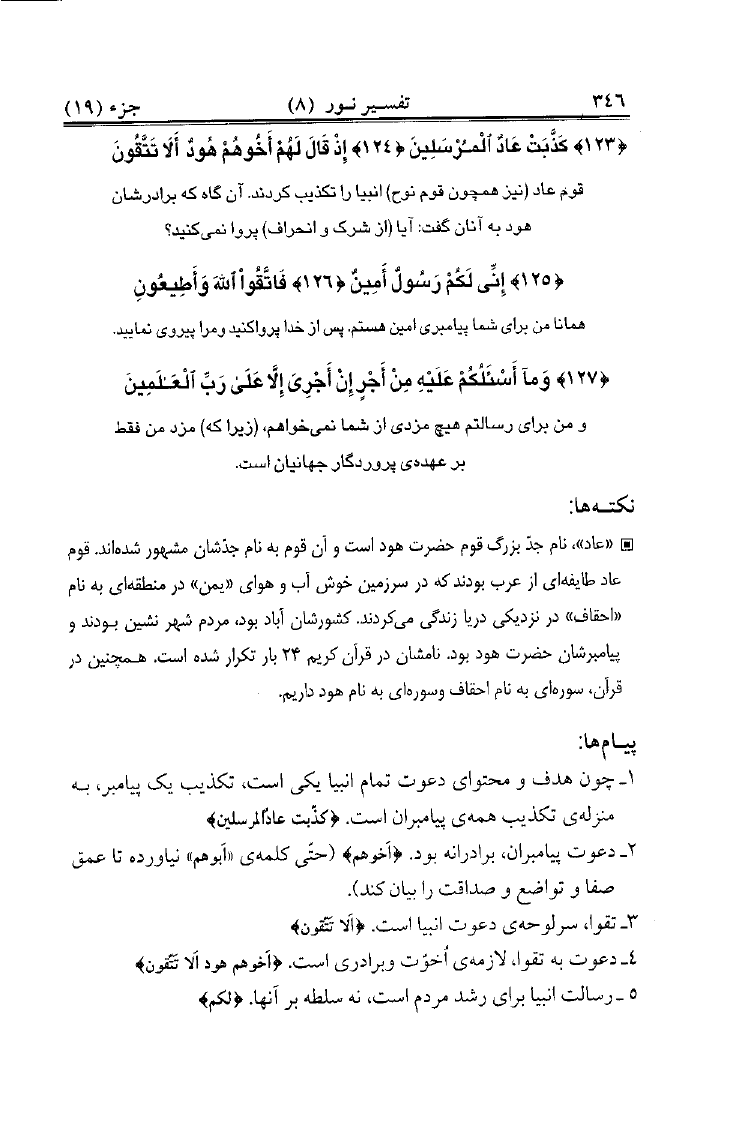 ٣٤٦ تفسیر نور (٨) جزء (١٩)
﴿١٢٣﴾ كَذَّبَتْ عَادٌ ٱلْمُرْسَلِينَ ﴿١٢٤﴾ إِذْ قَالَ لَهُمْ أَخُوهُمْ هُودٌ أَلَا تَتَّقُونَ
قوم عاد (نیز همچون قوم نوح) انبیا را تکذیب کردند. آن گاه که برادرشان
هود به آنان گفت: آیا (از شرک و انحراف) پروا نمی‌کنید؟
﴿١٢٥﴾ إِنِّى لَكُمْ رَسُولٌ أَمِينٌ ﴿١٢٦﴾ فَاتَّقُواْ ٱللهَ وَأَطِيعُونِ
همانا من برای شما پیامبری امین هستم. پس از خدا پرواکنید ومرا پیروی نمایید.
﴿١٢٧﴾ وَمآ أَسْـَٔلُكُمْ عَلَيْهِ مِنْ أَجْرٍ إِنْ أَجْرِىَ إِلَّا عَلَىٰ رَبِّ ٱلْعَـٰلَمِينَ
و من برای رسالتم هیچ مزدی از شما نمی‌خواهم، (زیرا که) مزد من فقط
بر عهده‌ی پروردگار جهانیان است.
نکته‌ها:
▣ «عاد»، نام جدّ بزرگ قوم حضرت هود است و آن قوم به نام جدّشان مشهور شده‌اند. قوم
عاد طایفه‌ای از عرب بودند که در سرزمین خوش آب و هوای «یمن» در منطقه‌ای به نام
«احقاف» در نزدیکی دریا زندگی می‌کردند. کشورشان آباد بود، مردم شهر نشین بودند و
پیامبرشان حضرت هود بود. نامشان در قرآن کریم ۲۴ بار تکرار شده است. همچنین در
قرآن، سوره‌ای به نام احقاف وسوره‌ای به نام هود داریم.
پیام‌ها:
١ـ چون هدف و محتوای دعوت تمام انبیا یکی است، تکذیب یک پیامبر، به
منزله‌ی تکذیب همه‌ی پیامبران است. ﴿كذّبت عادٌ المرسلين﴾
٢ـ دعوت پیامبران، برادرانه بود. ﴿أخوهم﴾ (حتّی کلمه‌ی «أبوهم» نیاورده تا عمق
صفا و تواضع و صداقت را بیان کند).
٣ـ تقوا، سرلوحه‌ی دعوت انبیا است. ﴿ألا تتّقون﴾
٤ـ دعوت به تقوا، لازمه‌ی اُخوّت وبرادری است. ﴿أخوهم هود ألا تتّقون﴾
٥ ـ رسالت انبیا برای رشد مردم است، نه سلطه بر آنها. ﴿لكم﴾